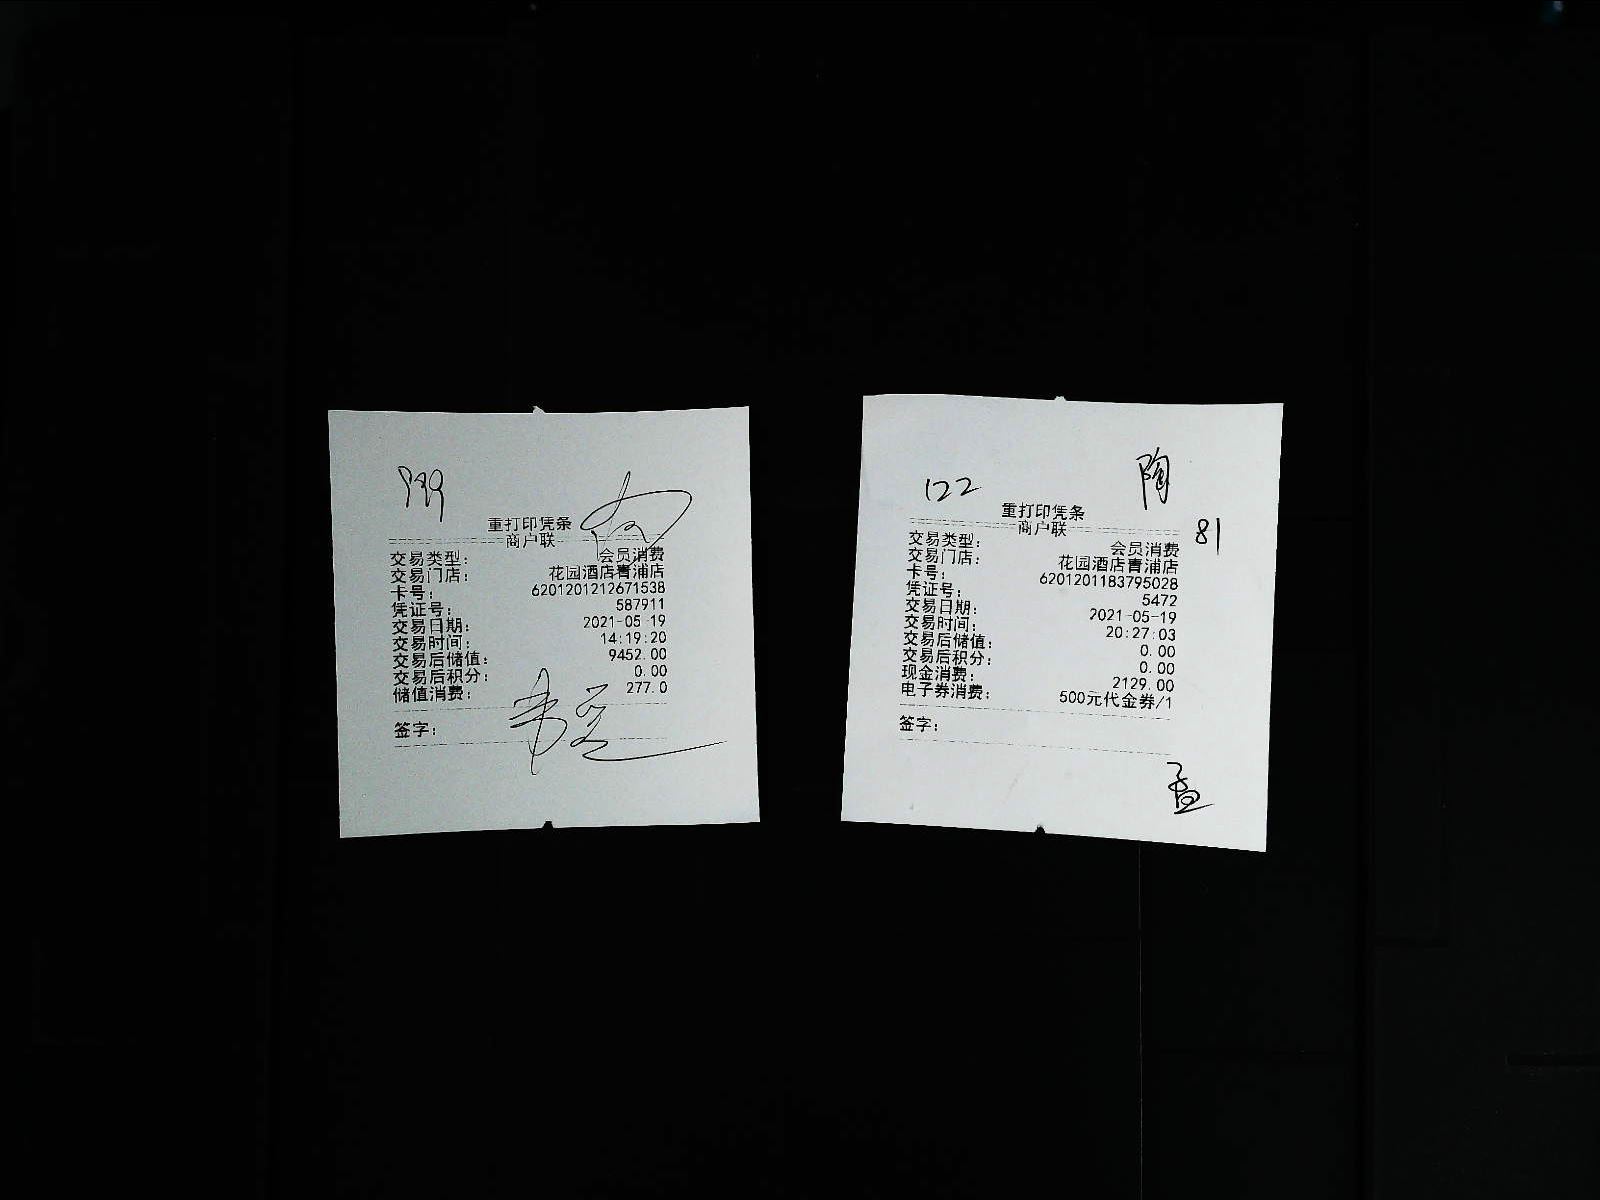 999
重打印凭条
商户联
交易类型: 会员消费
交易门店: 花园酒店青浦店
卡号: 6201201212671538
凭证号: 587911
交易日期: 2021-05-19
交易时间: 14:19:20
交易后储值: 9452.00
交易后积分: 0.00
储值消费: 277.0
签字:
122
陶
81
重打印凭条
商户联
交易类型: 会员消费
交易门店: 花园酒店青浦店
卡号: 6201201183795028
凭证号: 5472
交易日期: 2021-05-19
交易时间: 20:27:03
交易后储值: 0.00
交易后积分: 0.00
现金消费: 2129.00
电子券消费: 500元代金券/1
签字:
孟